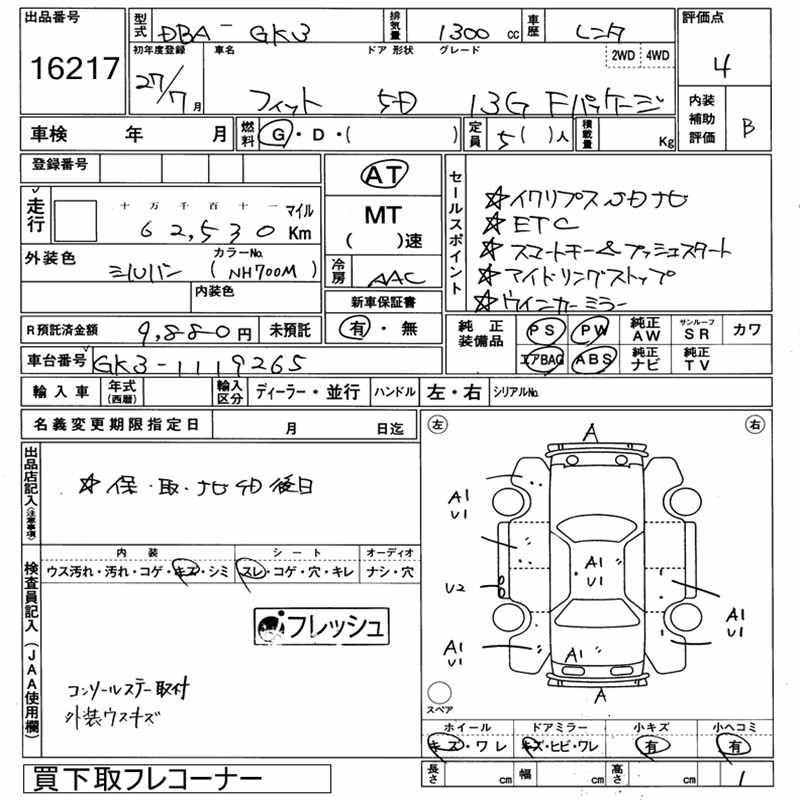 出品番号 16217
型式 DBA-GK3 排気量 1300 cc 車歴 レンタ
評価点 4
初年度登録 27/7月 車名 フィット ドア 形状 5D グレード 13G Fパッケージ 2WD 4WD
内装補助評価 B
車検 年 月 燃料 G・D・( ) 定員 5( )人 積載量 Kg
登録番号
走行 十 万 千 百 十 一 62,530 マイル Km
AT
MT
( )速
外装色 シルバン カラーNo. (NH700M)
内装色
冷房 AAC
セールスポイント
☆イクリプスSDナビ
☆ETC
☆スマートキー&プッシュスタート
☆アイドリングストップ
☆ウインカーミラー
新車保証書
有・無
R預託済金額 9,880円 未預託
純正装備品 PS PW 純正AW サンルーフSR カワ
エアBAG ABS 純正ナビ 純正TV
車台番号 GK3-1119265
輸入車 年式(西暦) 輸入区分 ディーラー・並行 ハンドル 左・右 シリアルNo.
名義変更期限指定日 月 日迄
出品店記入(注意事項)
☆保・取・ナビSD後日
左 右
A
A1
U1
A1
U1
U2
A1
U1
A1
U1
A1
A
スペア
検査員記入(JAA使用欄)
内装 シート オーディオ
ウス汚れ・汚れ・コゲ・キズ・シミ スレ・コゲ・穴・キレ ナシ・穴
フレッシュ
コンソールステー取付
外装ウスキズ
ホイール ドアミラー 小キズ 小ヘコミ
キズ・ワレ キズ・ヒビ・ワレ 有 有
買下取フレコーナー
長さ cm 幅 cm 高さ cm 1